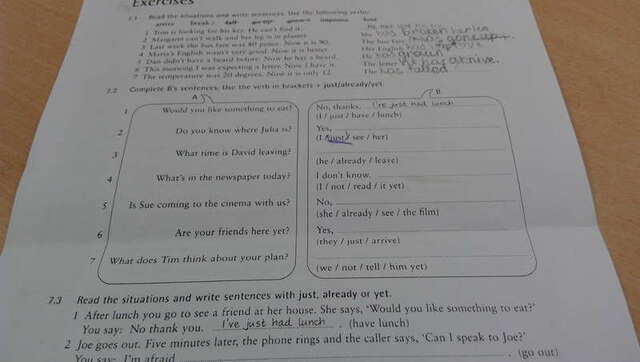 Exercises
7.1 Read the situations and write sentences. Use the following verbs:
arrive break fall go up grow improve lose
1 Tom is looking for his key. He can't find it.
2 Margaret can't walk and her leg is in plaster.
3 Last week the bus fare was 80 pence. Now it is 90.
4 Maria's English wasn't very good. Now it is better.
5 Dan didn't have a beard before. Now he has a beard.
6 This morning I was expecting a letter. Now I have it.
7 The temperature was 20 degrees. Now it is only 12.
He has lost his key.
has broken
The bus fare has gone up.
Her English
He has grown
The letter has arrive.
The has falled
7.2 Complete B's sentences. Use the verb in brackets + just/already/yet.
A B
1 Would you like something to eat? No, thanks. I've just had lunch
(I / just / have / lunch)
2 Do you know where Julia is? Yes,
(I / just / see / her)
3 What time is David leaving?
(he / already / leave)
4 What's in the newspaper today? I don't know.
(I / not / read / it yet)
5 Is Sue coming to the cinema with us? No,
(she / already / see / the film)
6 Are your friends here yet? Yes,
(they / just / arrive)
7 What does Tim think about your plan?
(we / not / tell / him yet)
7.3 Read the situations and write sentences with just, already or yet.
1 After lunch you go to see a friend at her house. She says, 'Would you like something to eat?'
You say: No thank you. I've just had lunch . (have lunch)
2 Joe goes out. Five minutes later, the phone rings and the caller says, 'Can I speak to Joe?'
You say: I'm afraid . (go out)